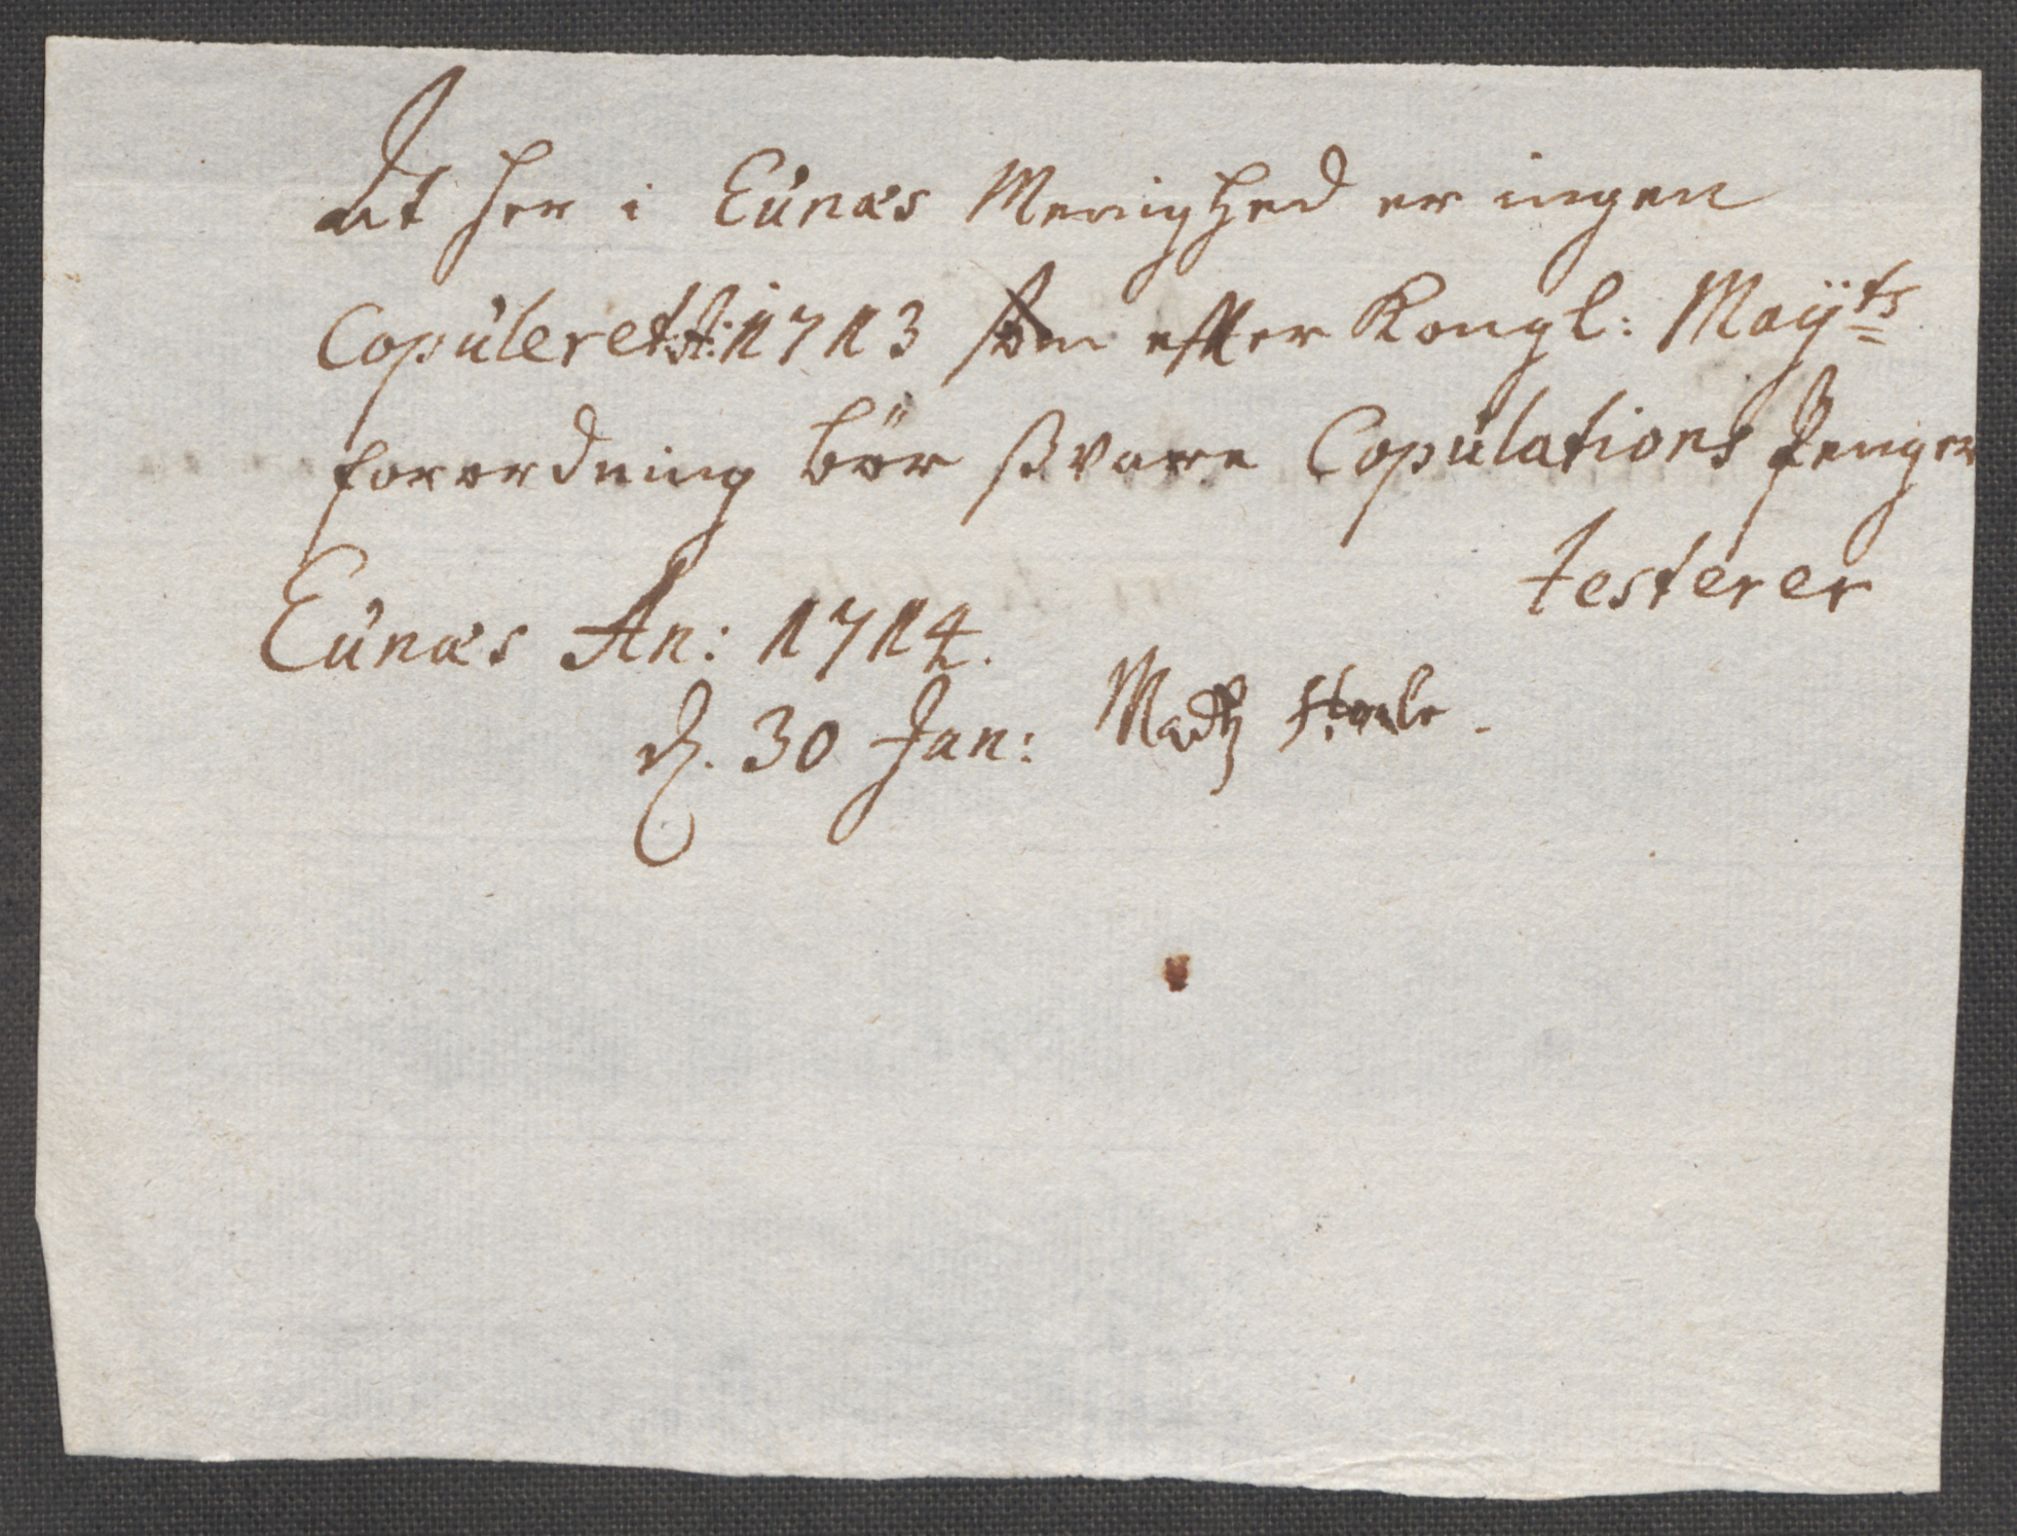 At her i Eùnæs Menighed er ingen
Copùleret A: 1713 som effter Kongl: Mayts
forordning bör ßvare Copùlations Penger
testerer
Eùnæs An: 1714.
d. 30 Jan: Madtz